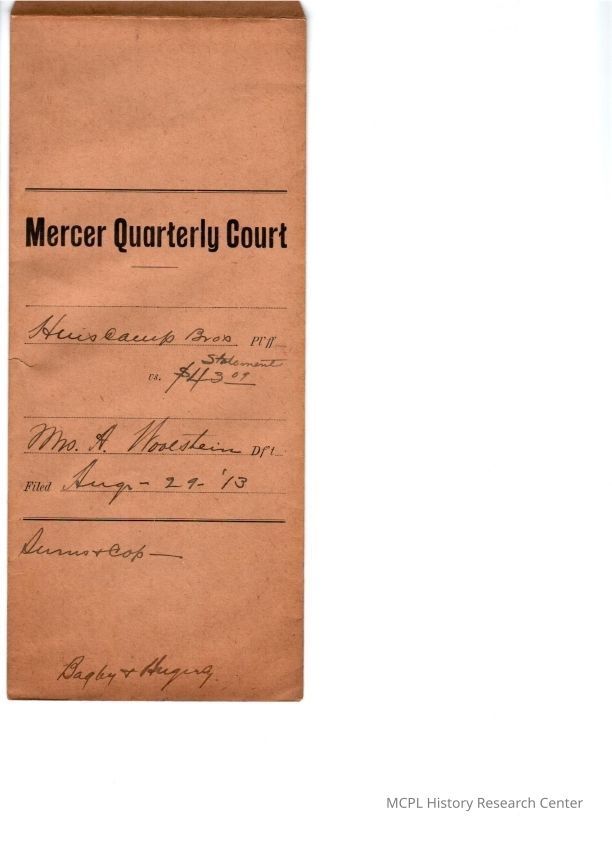 Mercer Quarterly Court
Huiscamp Bros Pl'ff
Statement
vs. $43.09
Mrs. A. Woolstein Df't
Filed Aug - 29 - '13
Sums & Cop —
Bagby &
MCPL History Research Center